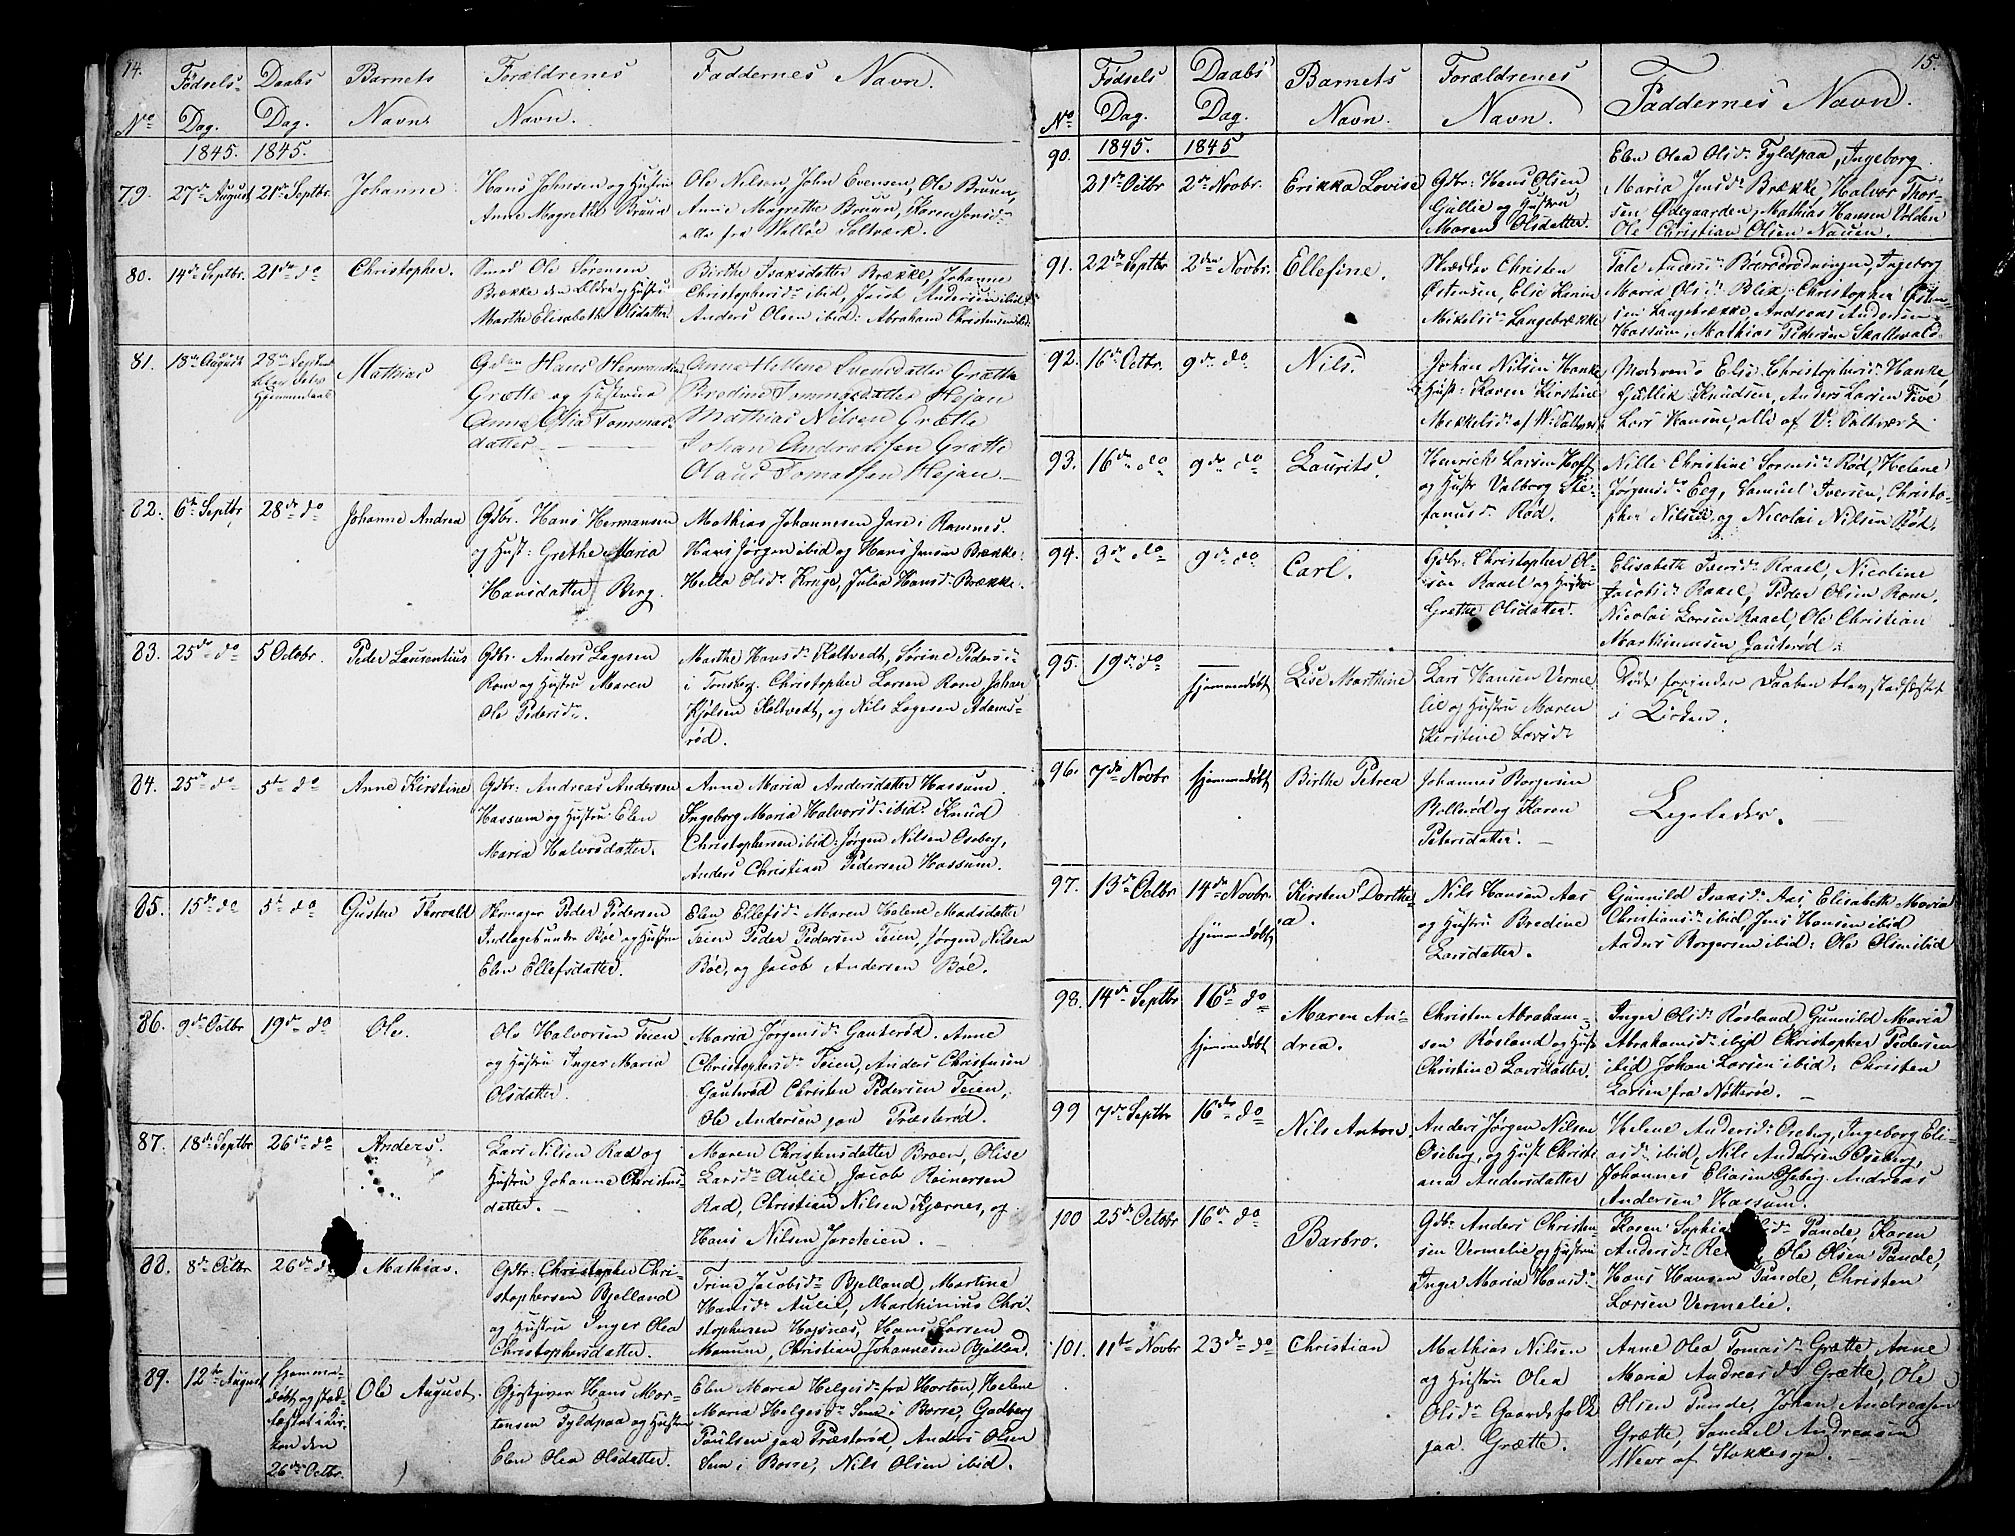 14.
Fødsels- Daabs Barnets Forældrenes Faddernes Navn.
No Dag. Dag. Navn Navn.
1845. 1845.
79. 27de August 21de Septbr. Johanne Hans Johnsen og Hustru Anne Magrethe Bruun
Ole Nilsen, John Evensen, Ole Bruun,
Anne Magrethe Bruun, Karen Jonsdr
alle fra Valløe Saltværk.
80. 14de Septbr. 21de do Christopher. Smed Ole Sørensen
Brække den Eldre og Hustru
Marthe Elisabeth Olsdatter
Birthe Isaksdatter Brække, Johanne
Christophersdr ibid, Jacob Andersen ibid
Anders Olsen ibid: Abraham Christensen ibid.
81. 18de August 28de Septembr
blev dets
Hjemmedaab
Mathias
Gdbr Hans Hermansen
Grætte og Hustrue
Anna Olia Tommas-
datter
Anna Hellene Svensdatter Grætte
Bredine Tommasdatter Hejan
Mathias Nilsen Grætte
Johan Andreassen Grætte
Olaus Tomassen Hejan.
82. 6te Septbr 28de do Johanne Andrea Gdbr. Hans Hermansen
og Hust: Grethe Maria
Hansdatter Berg.
Mathias Johannesen Jare i Ramnes.
Hans Jørgen ibid og Hans Jensen Brække.
Hella Olsdr Kruge, Julia Hansdr Brække.
83. 25de do 5 Octobr. Peder Laurentius Gdbr. Anders Legesen
Rom og Hustru Maren
Ole Pedersdr.
Marthe Hansdr Holtvedt, Sørine Pedersdr
i Tønsberg. Christopher Larsen Rom, Johan
Kjølsen Holtvedt, og Nils Legesen Adams-
rød.
84. 25de do 5te do Anne Kirstine Gdbr. Andreas Andersen
Hassum og Hustru Elen
Maria Halvorsdatter.
Anne Maria Andersdatter Hassum
Ingeborg Maria Halvorsdr ibid: Knud
Christophersen ibid: Jørgen Nilsen Oseberg,
Anders Christian Pedersen Hassum.
85. 15de do 5te do Gusten Thorvald Skomager Peder Pedersen
Indlagt under Bøe og Hustru
Elen Ellefsdatter.
Elen Ellefsdr Maren Helene Madsdatter
Teien Peder Pedersen Teien, Jørgen Nilsen
Bøe, og Jacob Andersen Bøe.
86. 9de Octbr 19de do Ole. Ole Halvorsen Teien
og Hustru Inger Maria
Olsdatter.
Maria Jørgensdr Gauterød. Anne
Christophersdr Teien, Anders Christensen
Gauterød Christen Pedersen Teien,
Ole Andersen paa Træsterød.
87. 18de Septbr 26de do Anders. Lars Nilsen Rad og
Hustru Johanne Christens-
datter.
Maren Christensdatter Broen, Olise
Larsdr Aulie, Jacob Reinersen
Rad, Christian Nilsen Kjærnes, og
Hans Nilsen Jareteien.
88. 8de Octbr 26de Mathias. Gdbr: Christopher Chri-
stophersen Bjelland
og Hustru Inger Olea
Christophersdatter.
Trine Jacobsdr Bjelland, Martina
Hansdr Aulie, Marthinius Chri-
stophersen Hojsnes, Hans Larsen
Manum, Christian Johannesen Bjelland.
89. 12te August Hjemme-
døbt, og stad-
fæstet i Kir-
ken den
26de Octbr.
Ole August. Gjestgiver Hans Mor-
tensen Fyldpaa og Hustru
Elen Olea Olsdatter.
Elen Maria Helgesdr fra Horten, Helene
Maria Helgesdr Sem i Borre, Gudberg
Paulsen paa Træsterød, Anders Olsen
Sem i Borre, Nils Olsen ibid.
15.
Fødsels Daabs Barnets Forældrenes Faddernes Navn.
No Dag. Dag. Navn. Navn.
1845. 1845
90. 21de Octbr 2de Novbr. Erikka Lovise Gdbr: Hans Olsen
Gullie og Hustru
Maren Olsdatter.
Elen Olea Olsdr Fyldpaa, Ingeborg
Maria Jensdr Brække, Halvor Thor-
sen Ødegaarden, Mathias Hansen Volden
Ole Christian Olsen Nauen.
91. 22de Septbr 2den Novbr. Ellefine. Skrædder Christen
Østensen, Elise Karine
Mikelsdr Langebrække
Tale Andersdr Borerødningen, Ingeborg
Maria Olsdr Blix, Christopher Østen-
sen Langebrække, Andreas Andersen
Hassum, Mathias Pedersen Skallevald.
92. 16de Octbr. 9de do Nils. Johan Nilsen Hanke
Hust: Karen Kirstine
Mekkelsdr af V. Saltværk
Moderen: Else Christophersdr Hanke,
Gullik Knudsen, Anders Larsen Five
Lars Hansen, alle af V. Saltværk
93. 16de do 9de do Laurits. Henrick Larsen Hoff
og Hustr Valborg Ste-
fanusdr Rød.
Nille Christine Sorensdr Rød, Helene
Jørgensdr Eeg, Samuel Iversen, Christo-
pher Nilsen og Nicolai Nilsen Rød.
94. 3de do 9de do Carl. Gdbr: Christopher Ol-
sen Raael og Hustru
Grethe Olsdatter.
Elisabeth Iversdr Raael, Nicoline
Jacobsdr Raael, Peder Olsen Rom.
Nicolai Larsen Raael, Ole Christian
Marthinusen Gauterød.
95. 19de do — Hjemmedøbt Lise Marthine Lars Hansen Verme-
lie og Hustru Maren
Kirstine Larsdr
Døde forinden Daaben blev stadfæstet
i Kirken.
96. 7de Novbr Hjemmedøbt Birthe Petrea Johannes Borgersen
Bellerød og Karen
Petersdatter.
Legeledes.
97. 13de Octbr. 14de Novbr. Hjemmedøbt Kirsten Dorthe-
a.
Nils Hansen Aas
og Hustru Bredine
Larsdatter.
Gunnild Isaksdr Aas, Elisabeth Maria
Christiansdr ibid, Jens Hansen ibid
Anders Borgersen ibid: Ole Olsen ibid
98. 14de Septbr 16de do Hjemmedøbt Maren An-
drea.
Christen Abraham-
sen Røsland og Hust
Christine Larsdatter.
Inger Olsdr Røsland, Gunnild Maria
Abrahamsdr ibid Christopher Pedersen
ibid Johan Larsen ibid: Christen
Larsen fra Nøtterøe.
99 7de Septbr 16de do Nils Anton. Anders Jørgen Nilsen
Oseberg, og Hust Christi-
ana Andersdatter
Helene Andersdr Oseberg, Ingeborg Eli-
asdr ibid, Nils Andersen Oseberg,
Johannes Eliasen Oseberg. Andreas
Andersen Hassum.
100 25de Octobr 16de do Barbro. Gdbr. Anders Christen-
sen Vermelie og Hustru
Inger Maria Hansdr
Karen Sophia Pande, Karen
Andersdr Ole Olsen Pande,
Hans Hansen Pande, Christen
Larsen Vermelie.
101. 11te Novbr 23de do Christian Mathias Nilsen
og Hustru Olea
Olsdr Gaardsfolk
paa Grætte.
Anne Olea Tomasdr Grætte Anne
Maria Andreasdr Grætte, Ole
Olsen Pande, Johan Andreasen
Grætte, Samuel Andreasen
Neir af Stokkesogn.